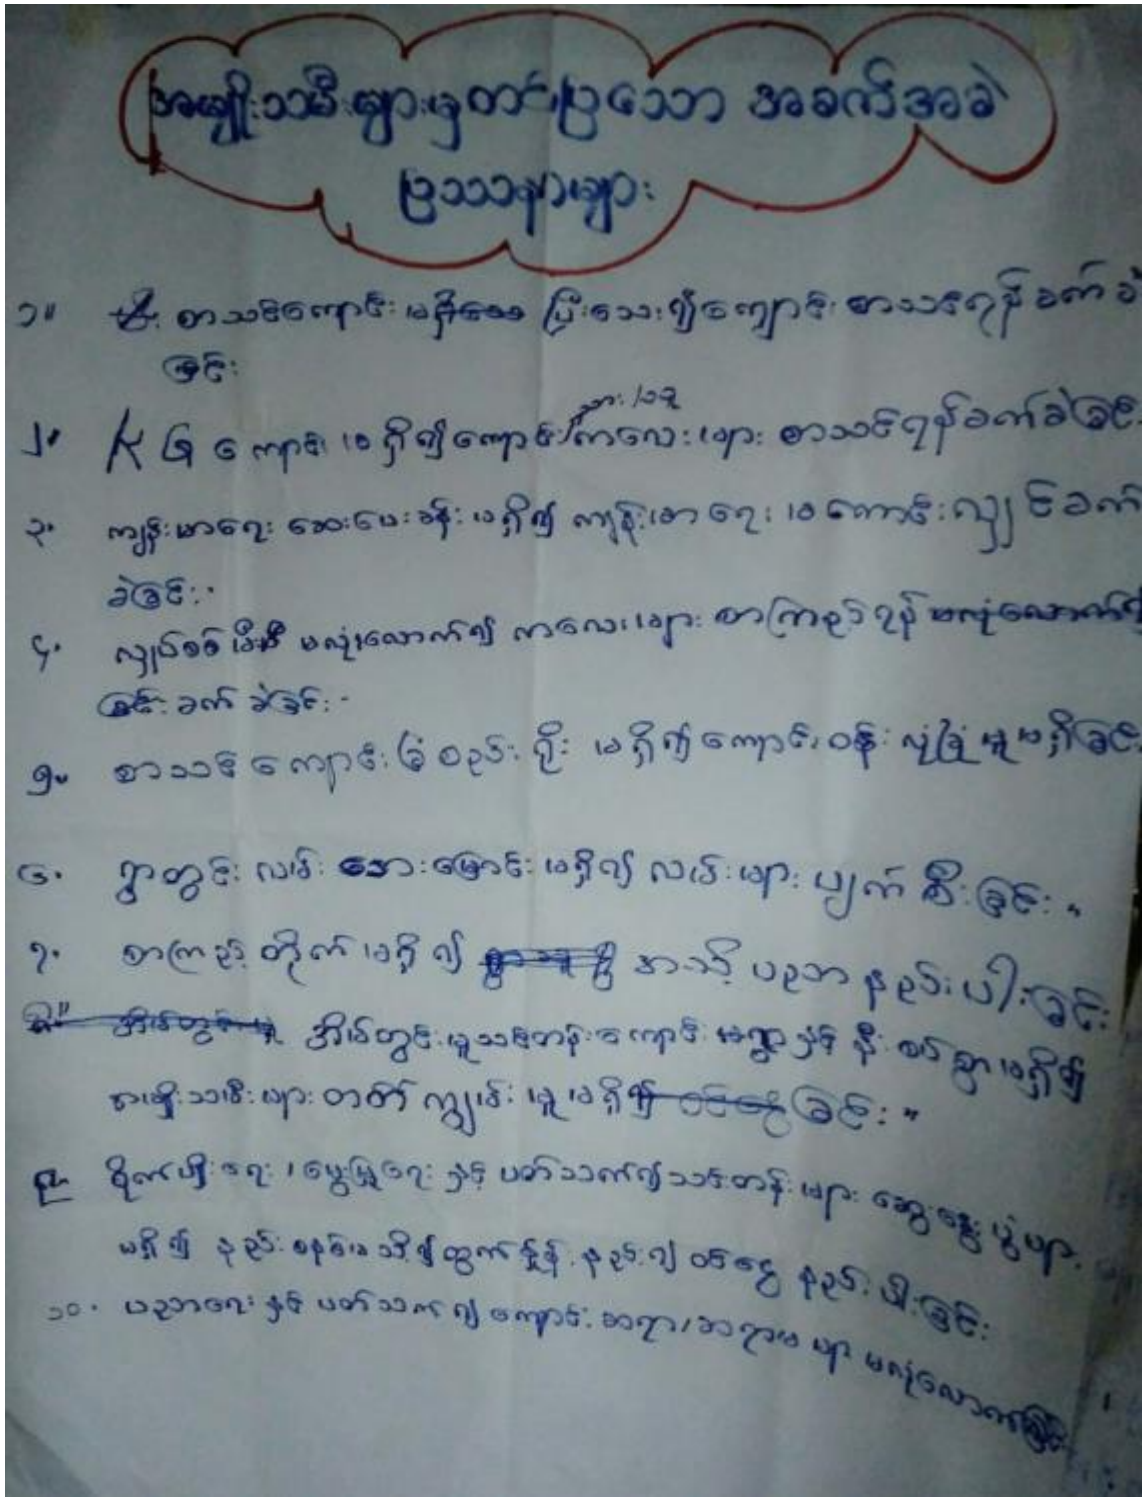 အမျိုးသမီးများမှတင်ပြသော အခက်အခဲ
ပြဿနာများ
၁။ စာသင်ကျောင်း မရှိသေး ပြီးသေး၍ကျောင်း စာသင်ရန်ခက်ခဲ
ခြင်း
၂။ KG ကျောင်း မရှိ၍ကျောင်းကလေးများ စာသင်ရန်ခက်ခဲခြင်း
၃။ ကျန်းမာရေး ဆေးပေးခန်း မရှိ၍ ကျန်းမာရေး မကောင်းလျှင်ခက်
ခဲခြင်း။
၄။ လျှပ်စစ်မီး မလုံလောက်၍ ကလေးများ စာကြည့်ရန် မလုံလောက်၍
ခြင်း ခက်ခဲခြင်း။
၅။ စာသင်ကျောင်း ခြံစည်းရိုး မရှိ၍ကျောင်းဝန်း လုံခြုံမှုမရှိခြင်း
၆။ ရွာတွင်း လမ်း ဘေးမြောင်း မရှိ၍ လမ်းများ ပျက်စီးခြင်း။
၇။ စာကြည့်တိုက်မရှိ၍ အသိပညာနည်းပါးခြင်း
အိမ်တွင်းမှုသင်တန်းကျောင်း မရွာနှင့် နီးစပ်စွာမရှိ၍
အမျိုးသမီးများ တတ်ကျွမ်းမှုမရှိခြင်း။
၉။ စိုက်ပျိုးရေး၊ မွေးမြူရေးနှင့် ပတ်သက်၍သင်တန်းများ ဆွေးနွေးပွဲများ
မရှိ၍ နည်းစနစ်မသိ၍ထွက်နှုန်းနည်း၍ ဝင်ငွေနည်းပါးခြင်း
၁၀။ ပညာရေးနှင့် ပတ်သက်၍ ကျောင်းဆရာ/ဆရာမများ မလုံလောက်ခြင်း